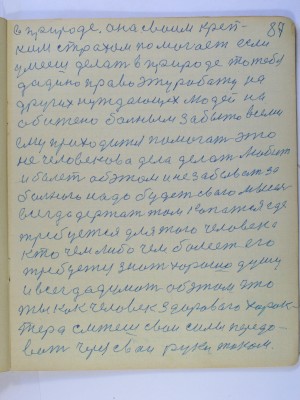 87
в природе. она своим креп-
ким страхом помогает если
умееш делат в природе то тебя
дадино право эту работу на
других нуждающех людей на
обижено больным забыто всеми
ему приходится помогат это
не человекова дела делат любит
и болет об этом и не забыват за
больного надо будет свою мысль
всегда держат там копатся где
требуется для того человека
кто чем либо чем болеет его
требуется знат хорошо душу
и всегда думат об этом это
ты как человек здарового харак-
тера сумееш свои силы передо-
ват через свои руки током.